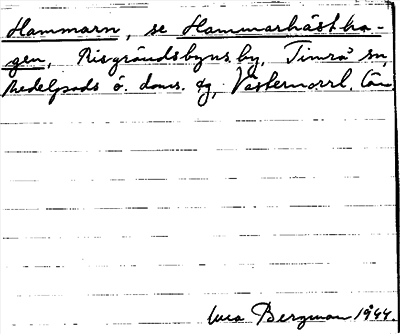 Hammarn, se Hammarhästha-
gen, Risgrändsbyns by, Timrå sn,
Medelpads ö. doms. tg, Västernorrl. län
Wea Bergman 1944.